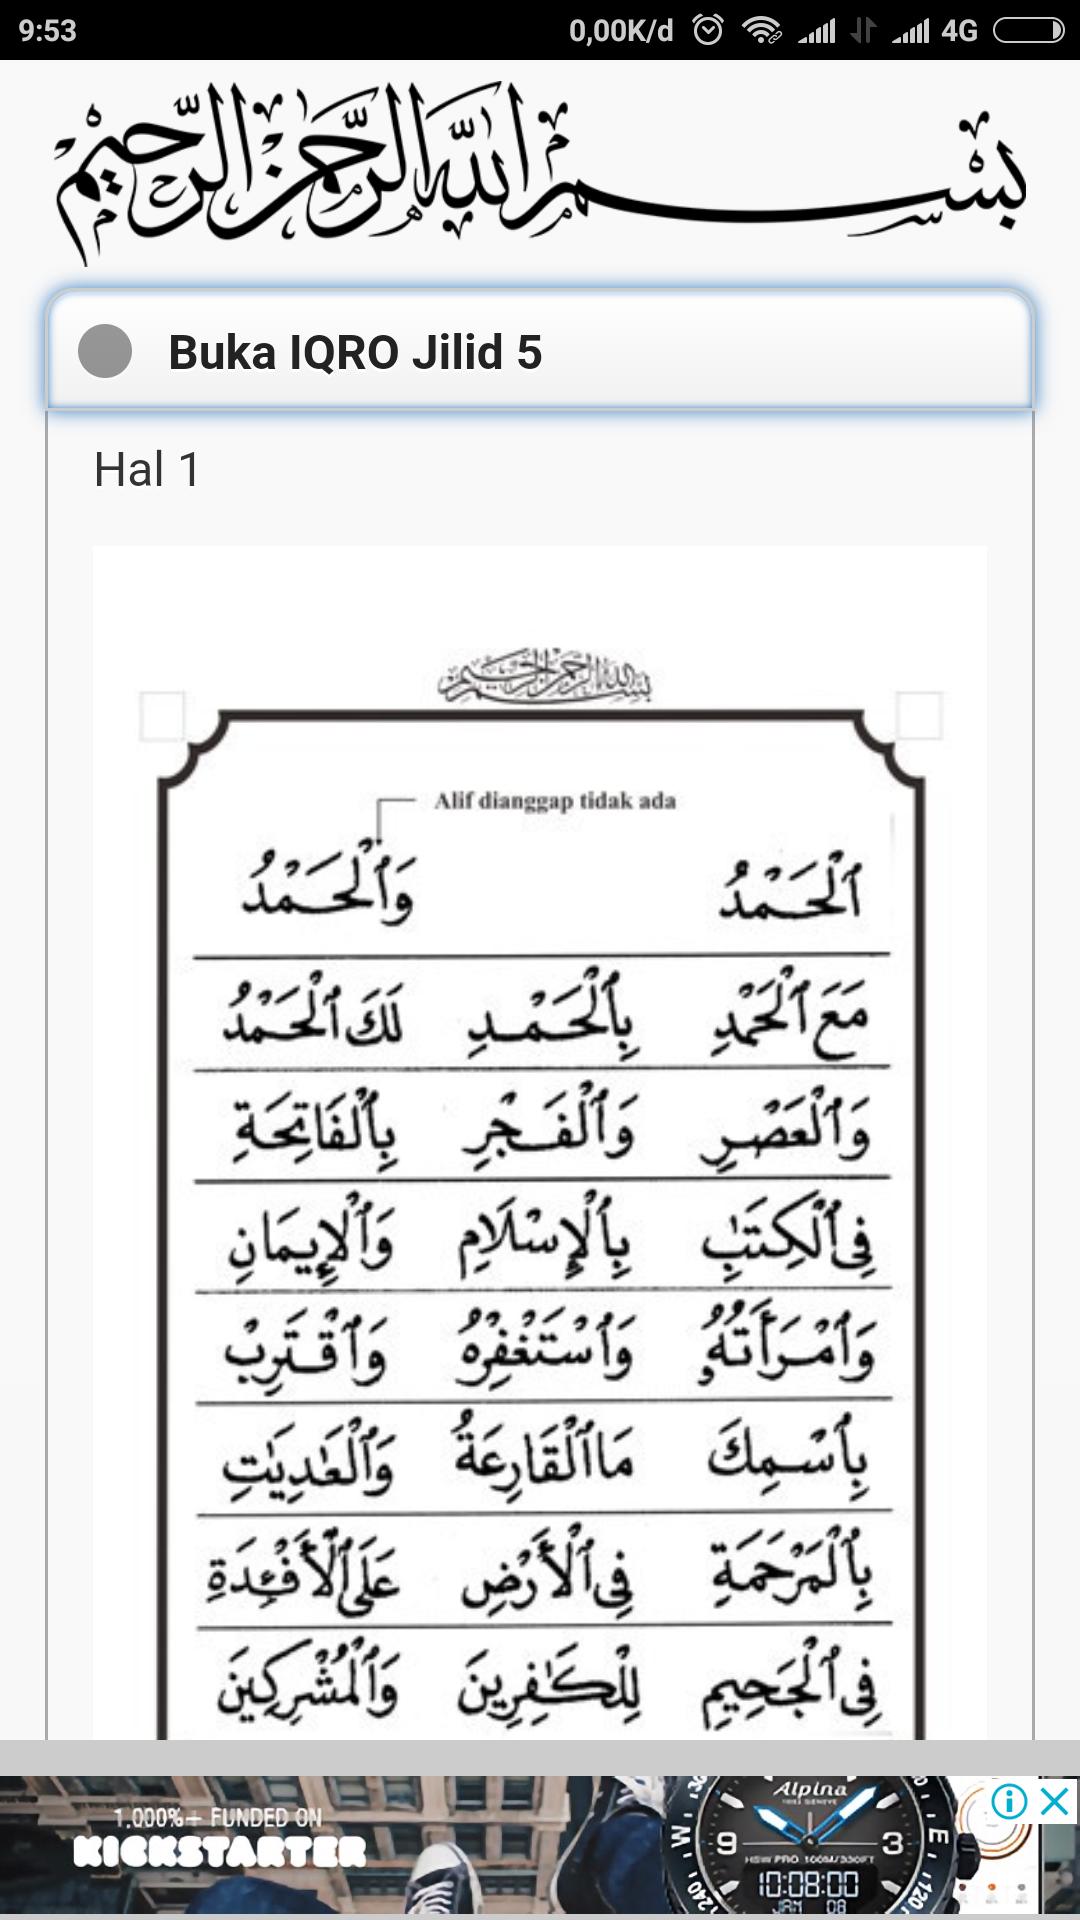 9:53 0,00K/d 4G
بسم الله الرحمن الرحيم
Buka IQRO Jilid 5
Hal 1
بسم الله الرحمن الرحيم
Alif dianggap tidak ada
ٱلْحَمْدُ وَٱلْحَمْدُ
مَعَ ٱلْحَمْدِ بِٱلْحَمْدِ لَكَ ٱلْحَمْدُ
وَٱلْعَصْرِ وَٱلْفَجْرِ بِٱلْفَاتِحَةِ
فِى ٱلْكِتَٰبِ بِٱلْإِسْلَامِ وَٱلْإِيمَانِ
وَٱمْرَأَتُهُۥ وَٱسْتَغْفِرْهُ وَٱقْتَرِبْ
بِٱسْمِكَ مَا ٱلْقَارِعَةُ وَٱلْعَٰدِيَٰتِ
بِٱلْمَرْحَمَةِ فِى ٱلْأَرْضِ عَلَى ٱلْأَفْئِدَةِ
فِى ٱلْجَحِيمِ لِلْكَٰفِرِينَ وَٱلْمُشْرِكِينَ
1.000%+ FUNDED ON
KICKSTARTER
Alpina
1883 GENEVE
W 9 3 E
HSW PRO 100M/330FT
10:08:00
JAN 08
240 120